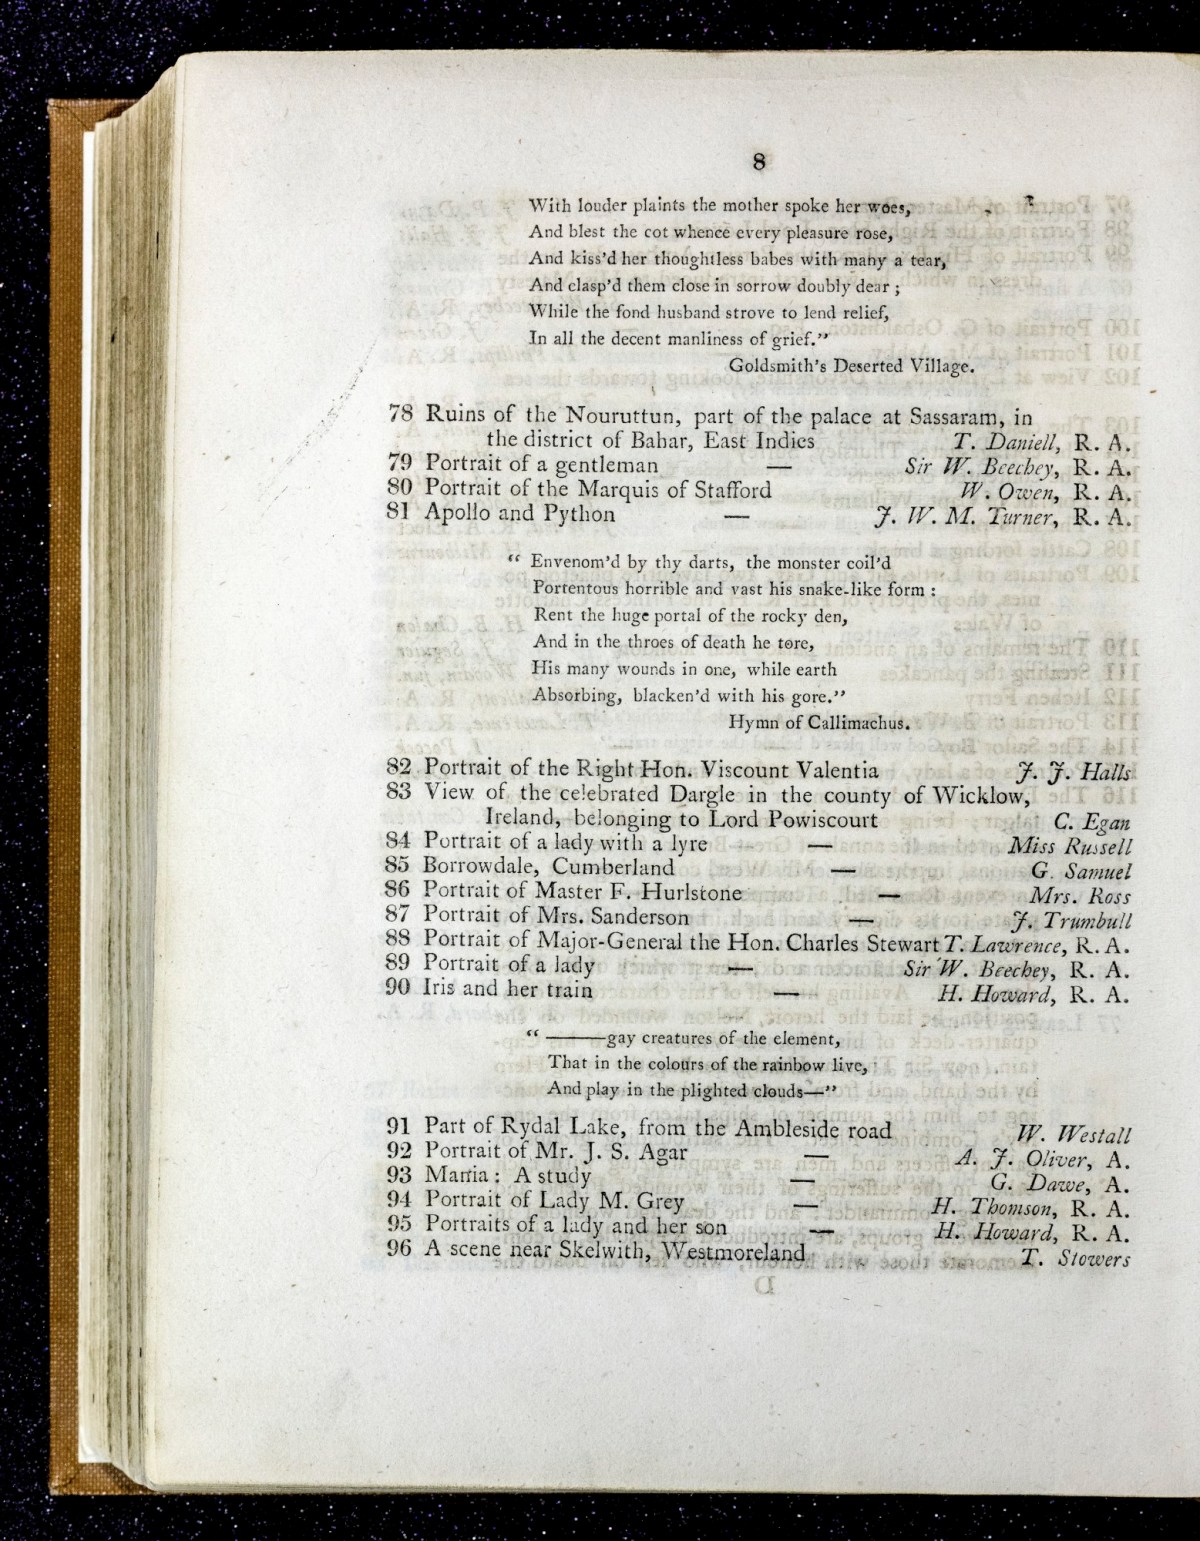 8
With louder plaints the mother spoke her woes,
And blest the cot whence every pleasure rose,
And kiss'd her thoughtless babes with many a tear,
And clasp'd them close in sorrow doubly dear ;
While the fond husband strove to lend relief,
In all the decent manliness of grief."
Goldsmith's Deserted Village.
78 Ruins of the Nouruttun, part of the palace at Sassaram, in
the district of Bahar, East Indies T. Daniell, R. A.
79 Portrait of a gentleman — Sir W. Beechey, R. A.
80 Portrait of the Marquis of Stafford W. Owen, R. A.
81 Apollo and Python — J. W. M. Turner, R. A.
" Envenom'd by thy darts, the monster coil'd
Portentous horrible and vast his snake-like form :
Rent the huge portal of the rocky den,
And in the throes of death he tore,
His many wounds in one, while earth
Absorbing, blacken'd with his gore."
Hymn of Callimachus.
82 Portrait of the Right Hon. Viscount Valentia J. J. Halls
83 View of the celebrated Dargle in the county of Wicklow,
Ireland, belonging to Lord Powiscourt C. Egan
84 Portrait of a lady with a lyre — Miss Russell
85 Borrowdale, Cumberland — G. Samuel
86 Portrait of Master F. Hurlstone — Mrs. Ross
87 Portrait of Mrs. Sanderson — J. Trumbull
88 Portrait of Major-General the Hon. Charles Stewart T. Lawrence, R. A.
89 Portrait of a lady — Sir W. Beechey, R. A.
90 Iris and her train — H. Howard, R. A.
" ———gay creatures of the element,
That in the colours of the rainbow live,
And play in the plighted clouds—"
91 Part of Rydal Lake, from the Ambleside road W. Westall
92 Portrait of Mr. J. S. Agar — A. J. Oliver, A.
93 Mama : A study — G. Dawe, A.
94 Portrait of Lady M. Grey — H. Thomson, R. A.
95 Portraits of a lady and her son — H. Howard, R. A.
96 A scene near Skelwith, Westmoreland T. Stowers